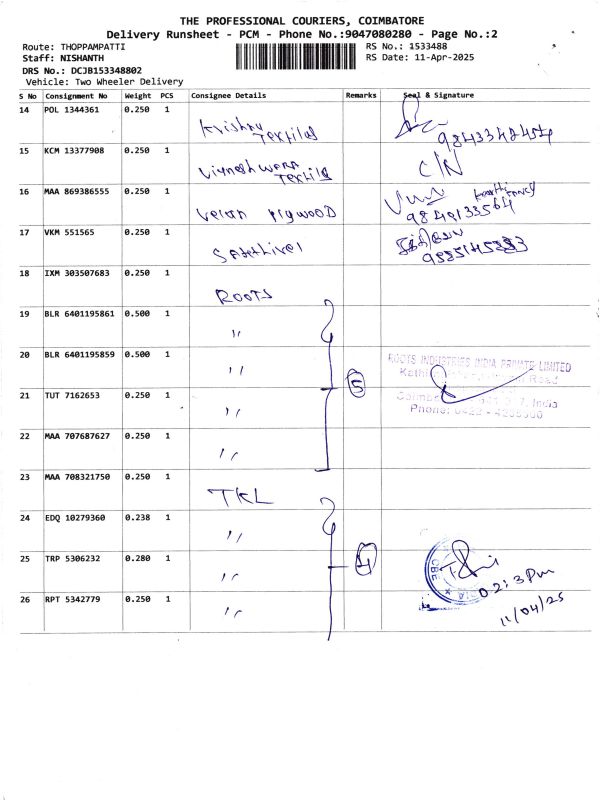 THE PROFESSIONAL COURIERS, COIMBATORE
Delivery Runsheet - PCM - Phone No.:9047080280 - Page No.:2
Route: THOPPAMPATTI RS No.: 1533488
Staff: NISHANTH RS Date: 11-Apr-2025
DRS No.: DCJB153348802
Vehicle: Two Wheeler Delivery
S No Consignment No Weight PCS Consignee Details Remarks Seal & Signature
14 POL 1344361 0.250 1
Krishna Textiles
15 KCM 13377908 0.250 1
Vigneshwara Textile C/N
16 MAA 869386555 0.250 1
Velan Plywood
17 VKM 551565 0.250 1
Sakthivel
18 IXM 303507683 0.250 1
ROOTS
19 BLR 6401195861 0.500 1
"
20 BLR 6401195859 0.500 1
" 5 ROOTS INDUSTRIES INDIA PRIVATE LIMITED
Road
21 TUT 7162653 0.250 1
" India
Phone:
22 MAA 707687627 0.250 1
"
23 MAA 708321750 0.250 1
TKL
24 EDQ 10279360 0.238 1
"
25 TRP 5306232 0.280 1
" 4 02:3 Pm
26 RPT 5342779 0.250 1
" 11/04/25